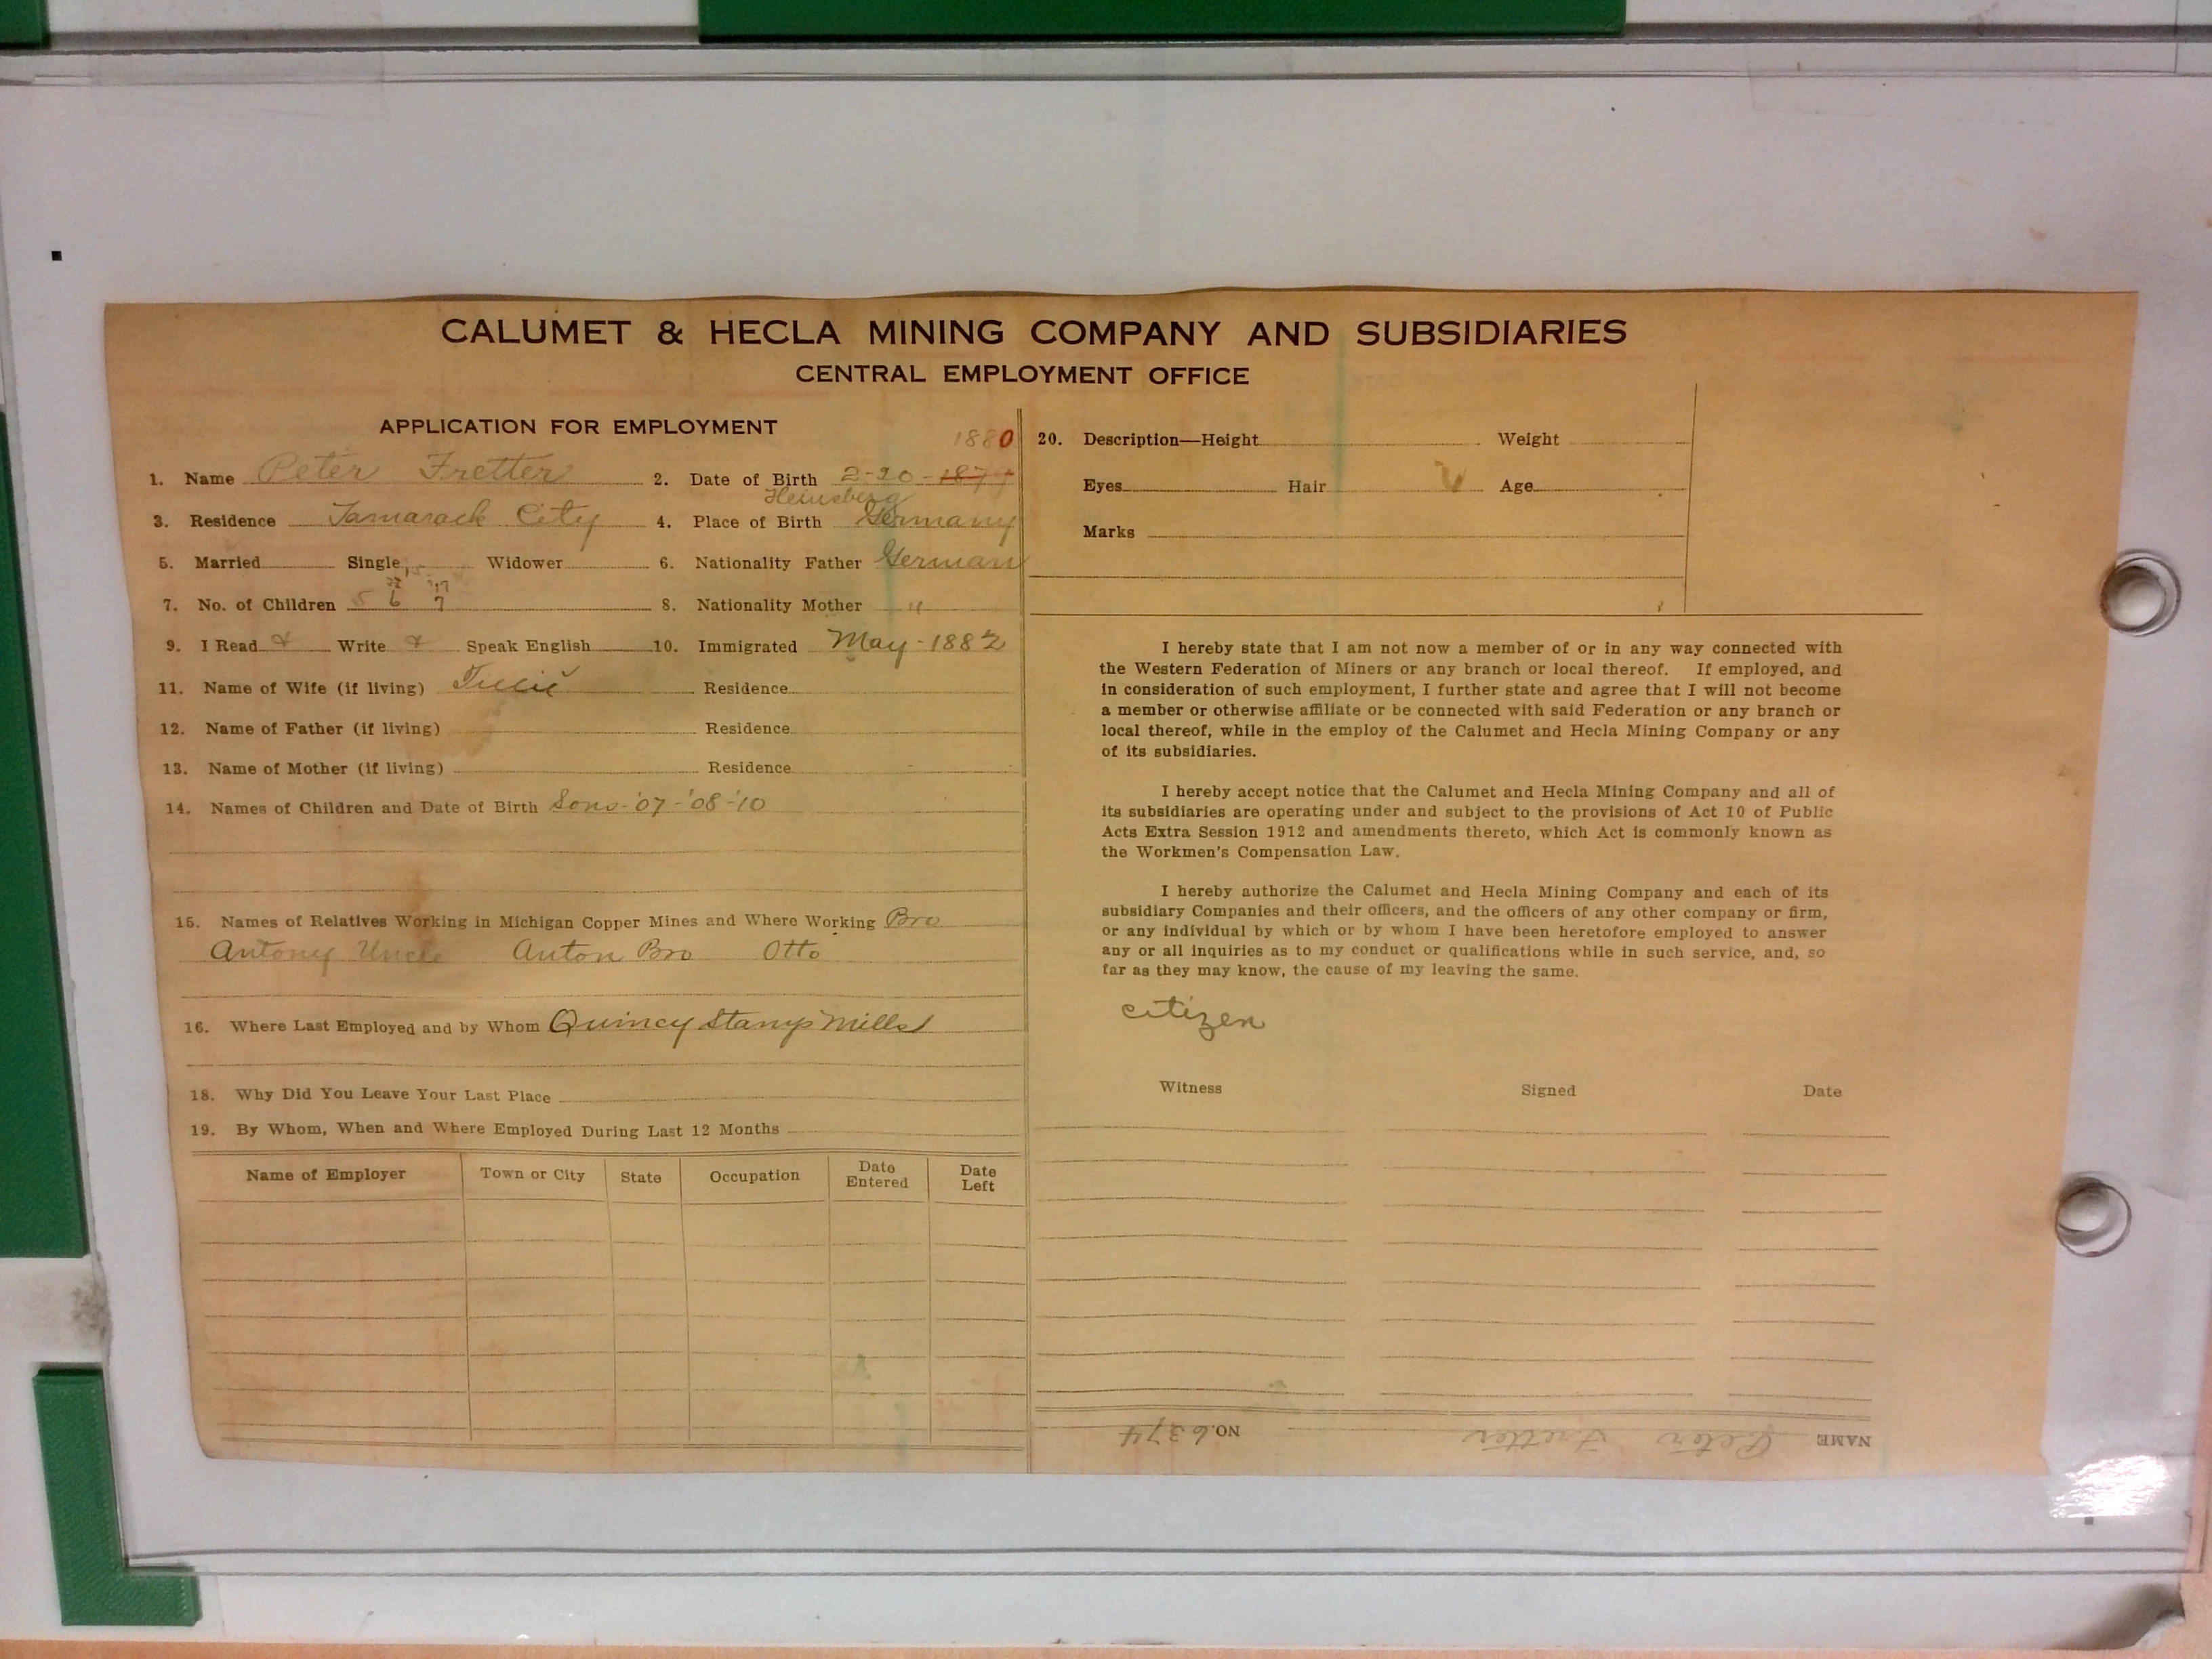 CALUMET & HECLA MINING COMPANY AND SUBSIDIARIES
CENTRAL EMPLOYMENT OFFICE
APPLICATION FOR EMPLOYMENT
1880
1. Name Peter Fretter 2. Date of Birth 2-20-1877
Heinsberg
3. Residence Tamarack City 4. Place of Birth Germany
5. Married Single Widower 6. Nationality Father German
'17
7. No. of Children 5 6 7 8. Nationality Mother "
9. I Read Write Speak English 10. Immigrated May-1882
11. Name of Wife (if living) Tillie Residence
12. Name of Father (if living) Residence
13. Name of Mother (if living) Residence
14. Names of Children and Date of Birth Sons-'07-'08-'10
15. Names of Relatives Working in Michigan Copper Mines and Where Working Bro
Antony Uncle Anton Bro Otto
16. Where Last Employed and by Whom Quincy Stamp Mills
18. Why Did You Leave Your Last Place
19. By Whom, When and Where Employed During Last 12 Months
Name of Employer Town or City State Occupation Date Entered Date Left
20. Description—Height Weight
Eyes Hair Age
Marks
I hereby state that I am not now a member of or in any way connected with
the Western Federation of Miners or any branch or local thereof. If employed, and
in consideration of such employment, I further state and agree that I will not become
a member or otherwise affiliate or be connected with said Federation or any branch or
local thereof, while in the employ of the Calumet and Hecla Mining Company or any
of its subsidiaries.
I hereby accept notice that the Calumet and Hecla Mining Company and all of
its subsidiaries are operating under and subject to the provisions of Act 10 of Public
Acts Extra Session 1912 and amendments thereto, which Act is commonly known as
the Workmen's Compensation Law.
I hereby authorize the Calumet and Hecla Mining Company and each of its
subsidiary Companies and their officers, and the officers of any other company or firm,
or any individual by which or by whom I have been heretofore employed to answer
any or all inquiries as to my conduct or qualifications while in such service, and, so
far as they may know, the cause of my leaving the same.
citizen
Witness Signed Date
NAME Peter Fretter NO. 6374